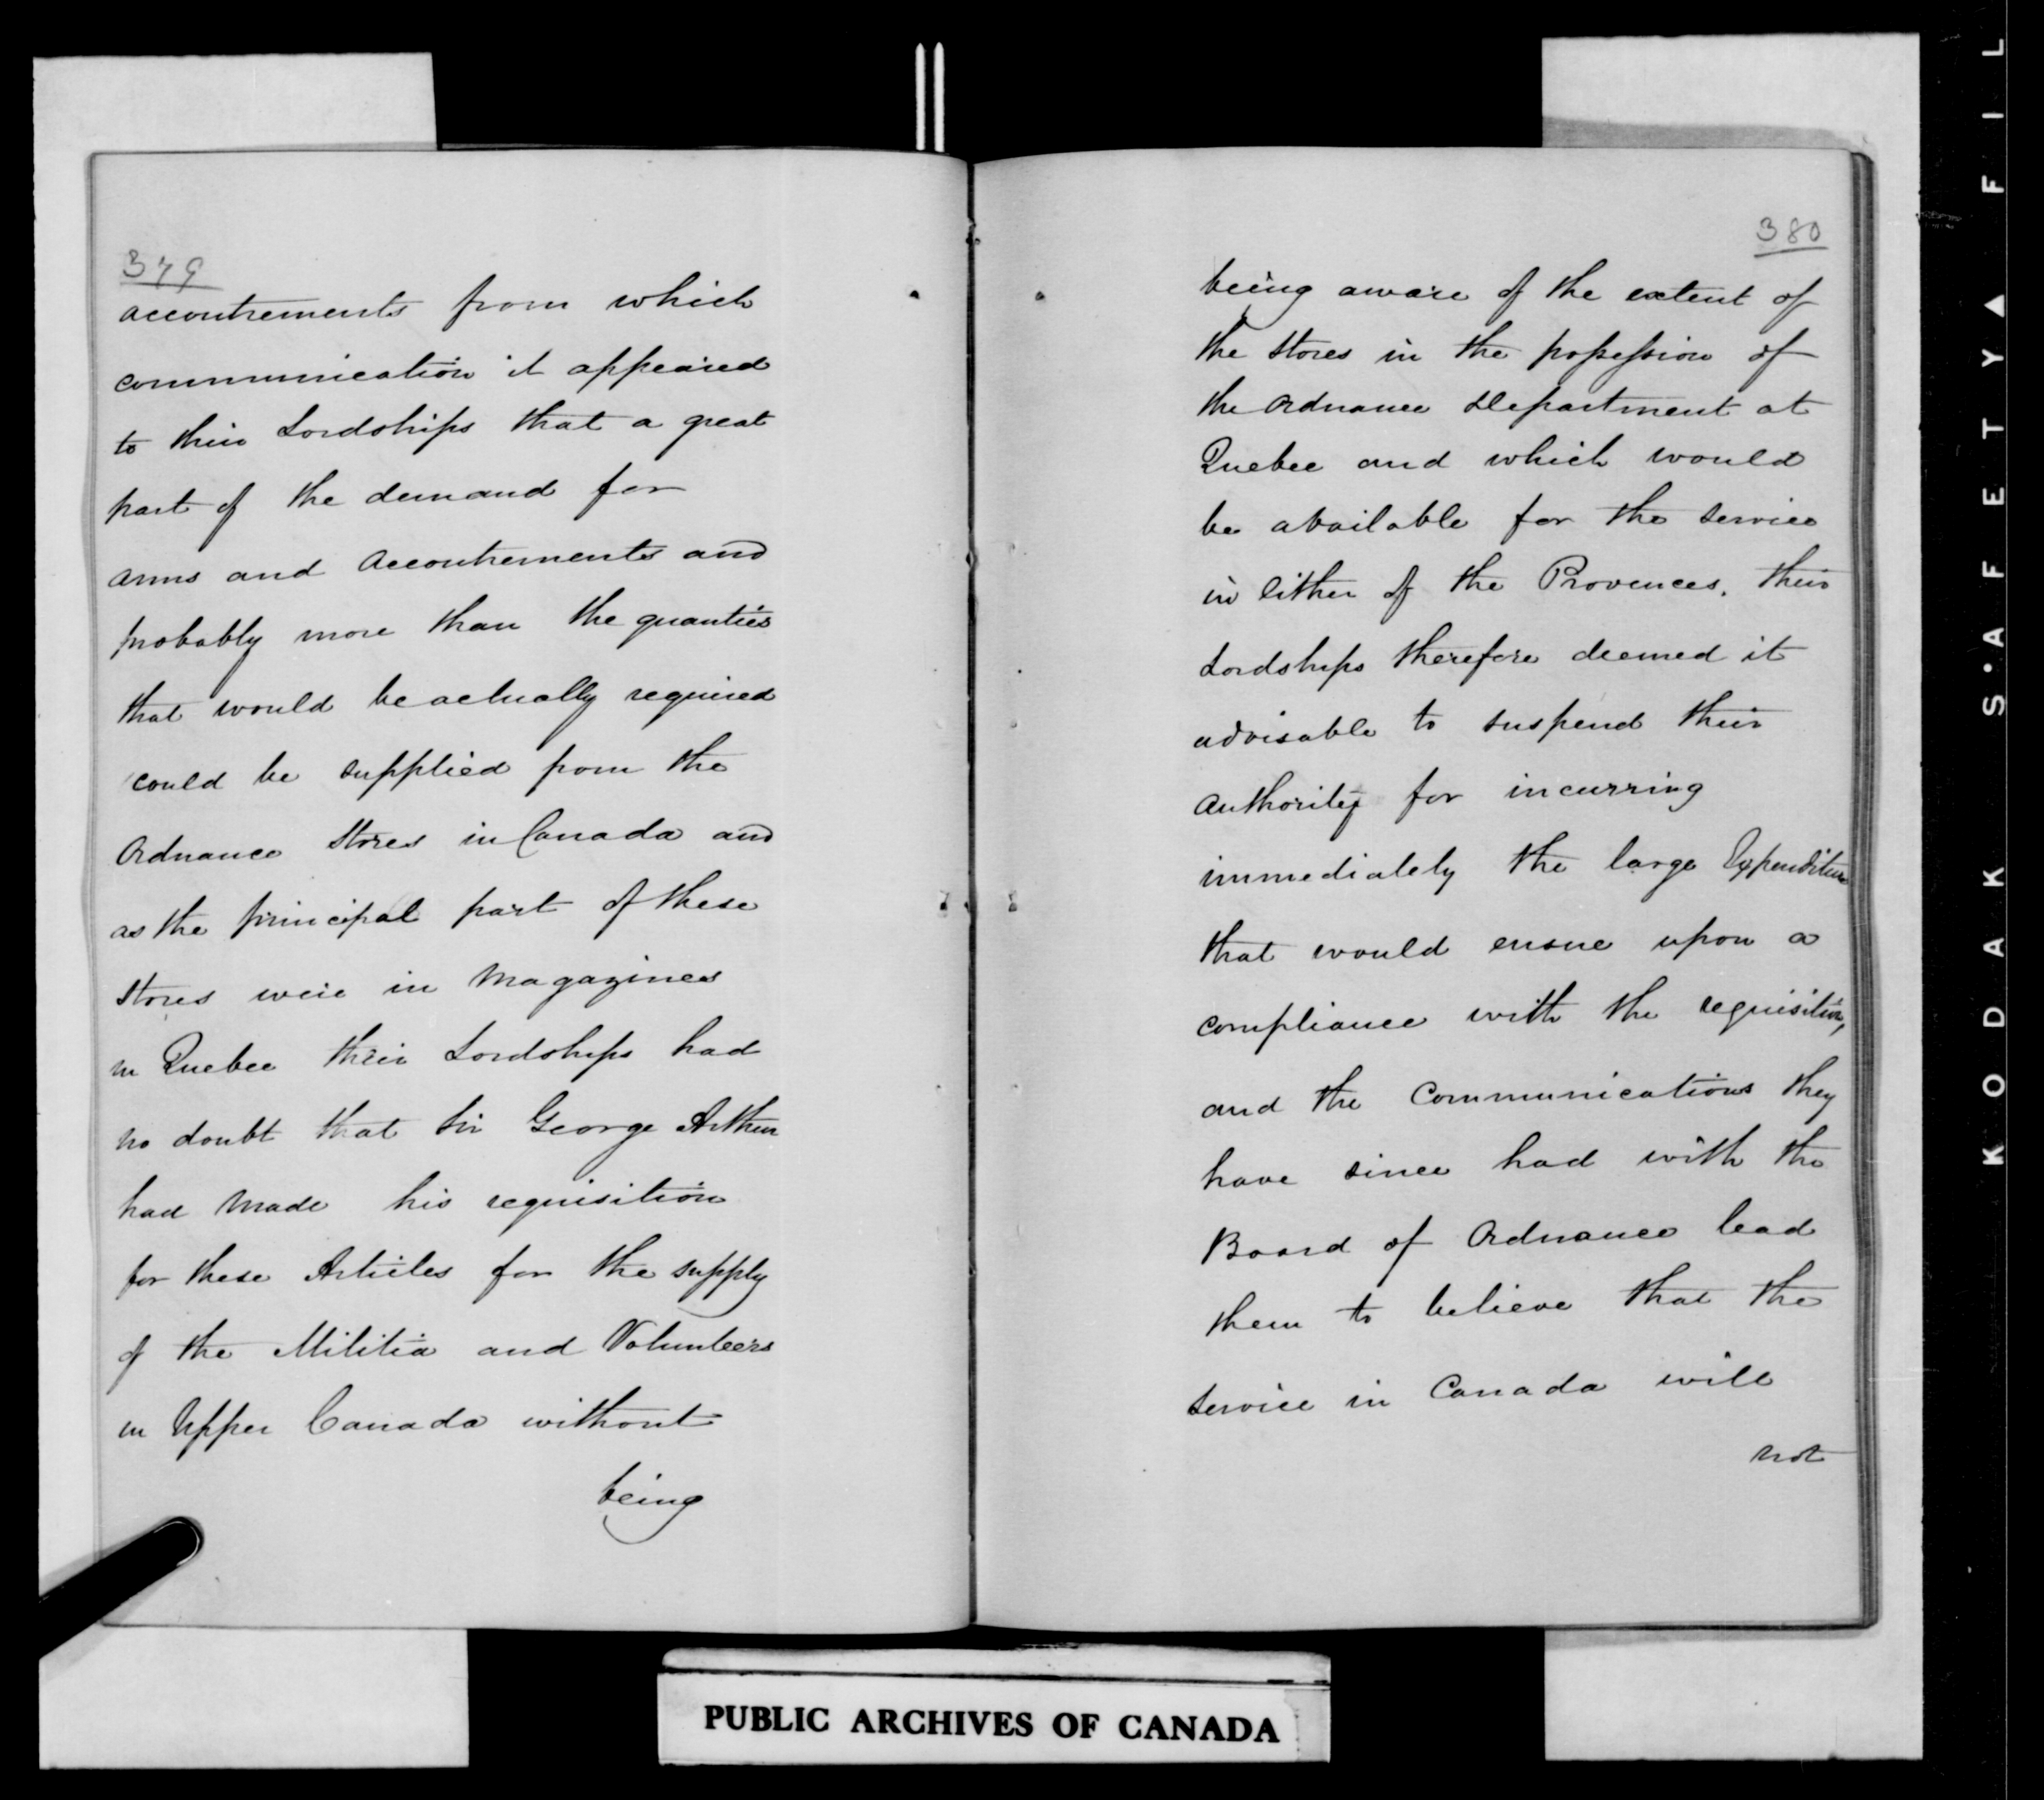 379
accoutrements from which
communication it appeared
to their Lordships that a great
part of the demand for
arms and accoutrements and
probably more than the quanties
that would be actually required
could be supplied from the
Ordnance Stores in Canada and
as the principal part of these
Stores were in Magazines
in Quebec their Lordships had
no doubt that Sir George Arthur
had made his requisition
for these Articles for the supply
of the Militia and Volunteers
in Upper Canada without
being
380
being aware of the extent of
the Stores in the possession of
the Ordnance Department at
Quebec and which would
be available for the service
in either of the Provences. their
Lordships therefore deemed it
advisable to suspend their
authority for incurring
immediately the large Expenditure
that would ensue upon a
compliance with the requisition,
and the Communications they
have since had with the
Board of Ordnance lead
them to believe that the
service in Canada will
not
PUBLIC ARCHIVES OF CANADA
KODAK S·AFETY▲FIL